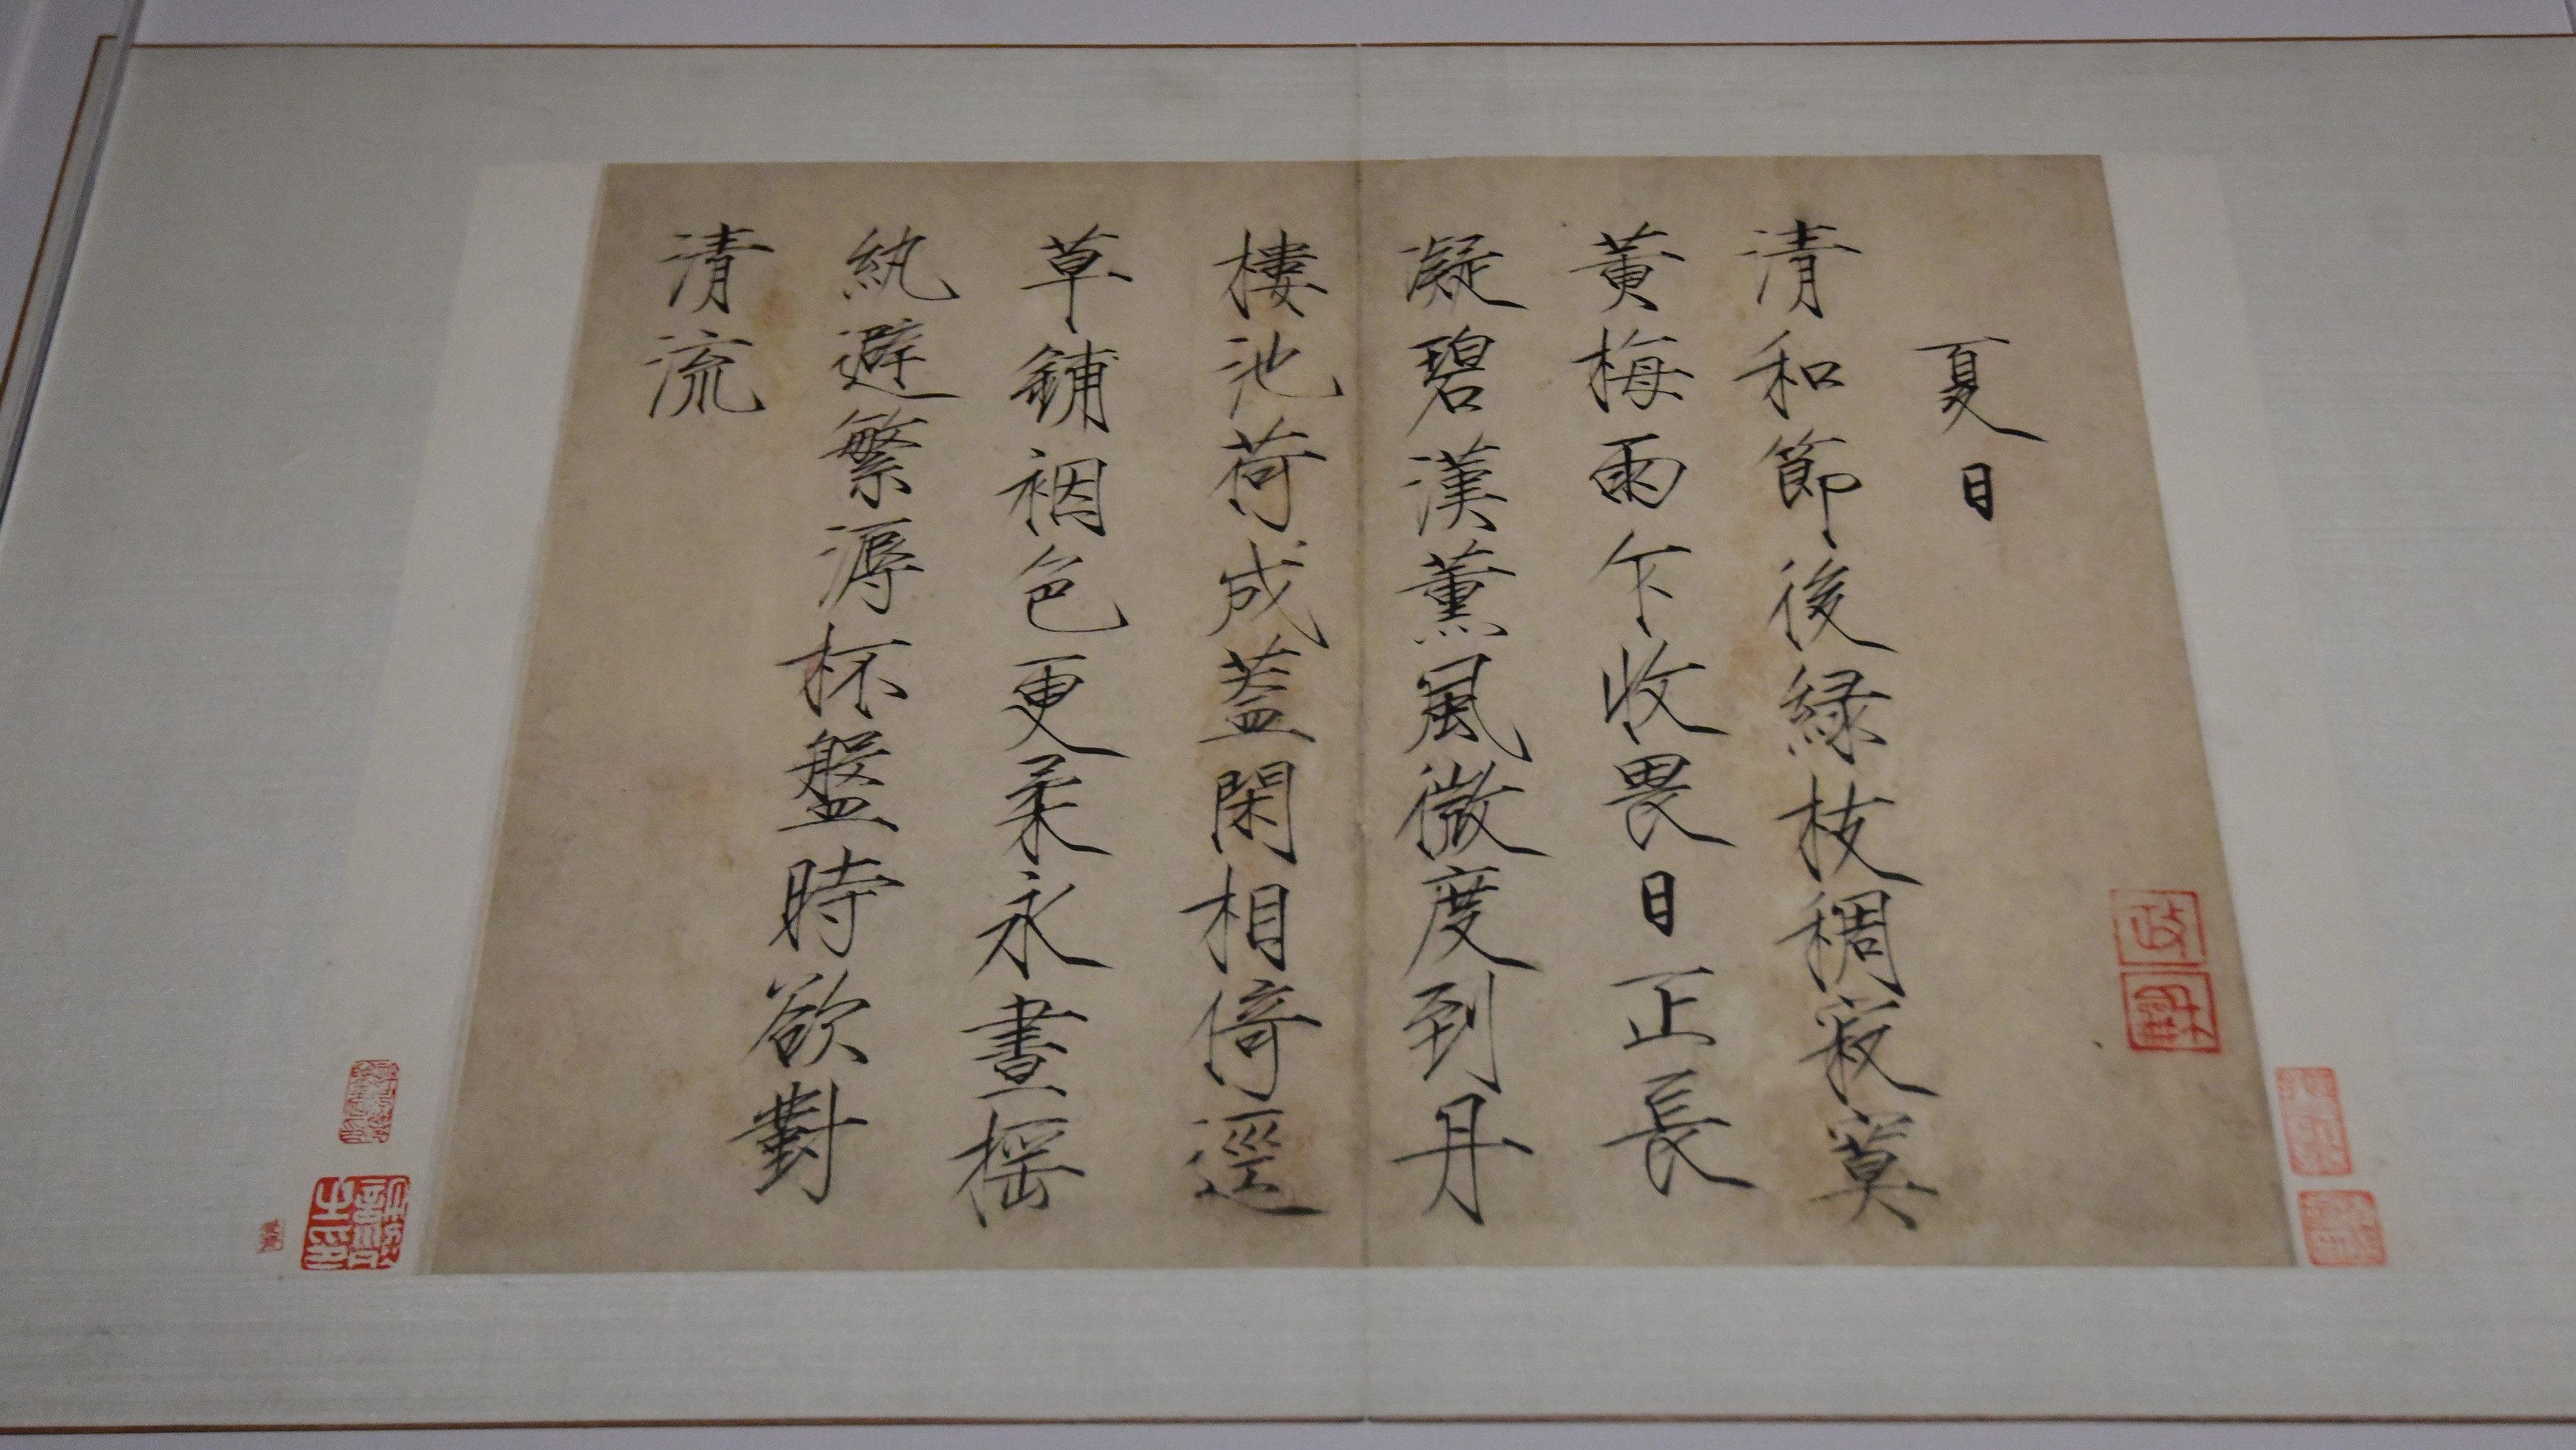 夏日
清和節後綠枝稠寂寞
黃梅雨乍收畏日正長
凝碧漢薰風微度到丹
樓池荷成蓋閑相倚逕
草鋪裀色更柔永晝搖
紈避繁溽杯盤時欲對
清流
政
和